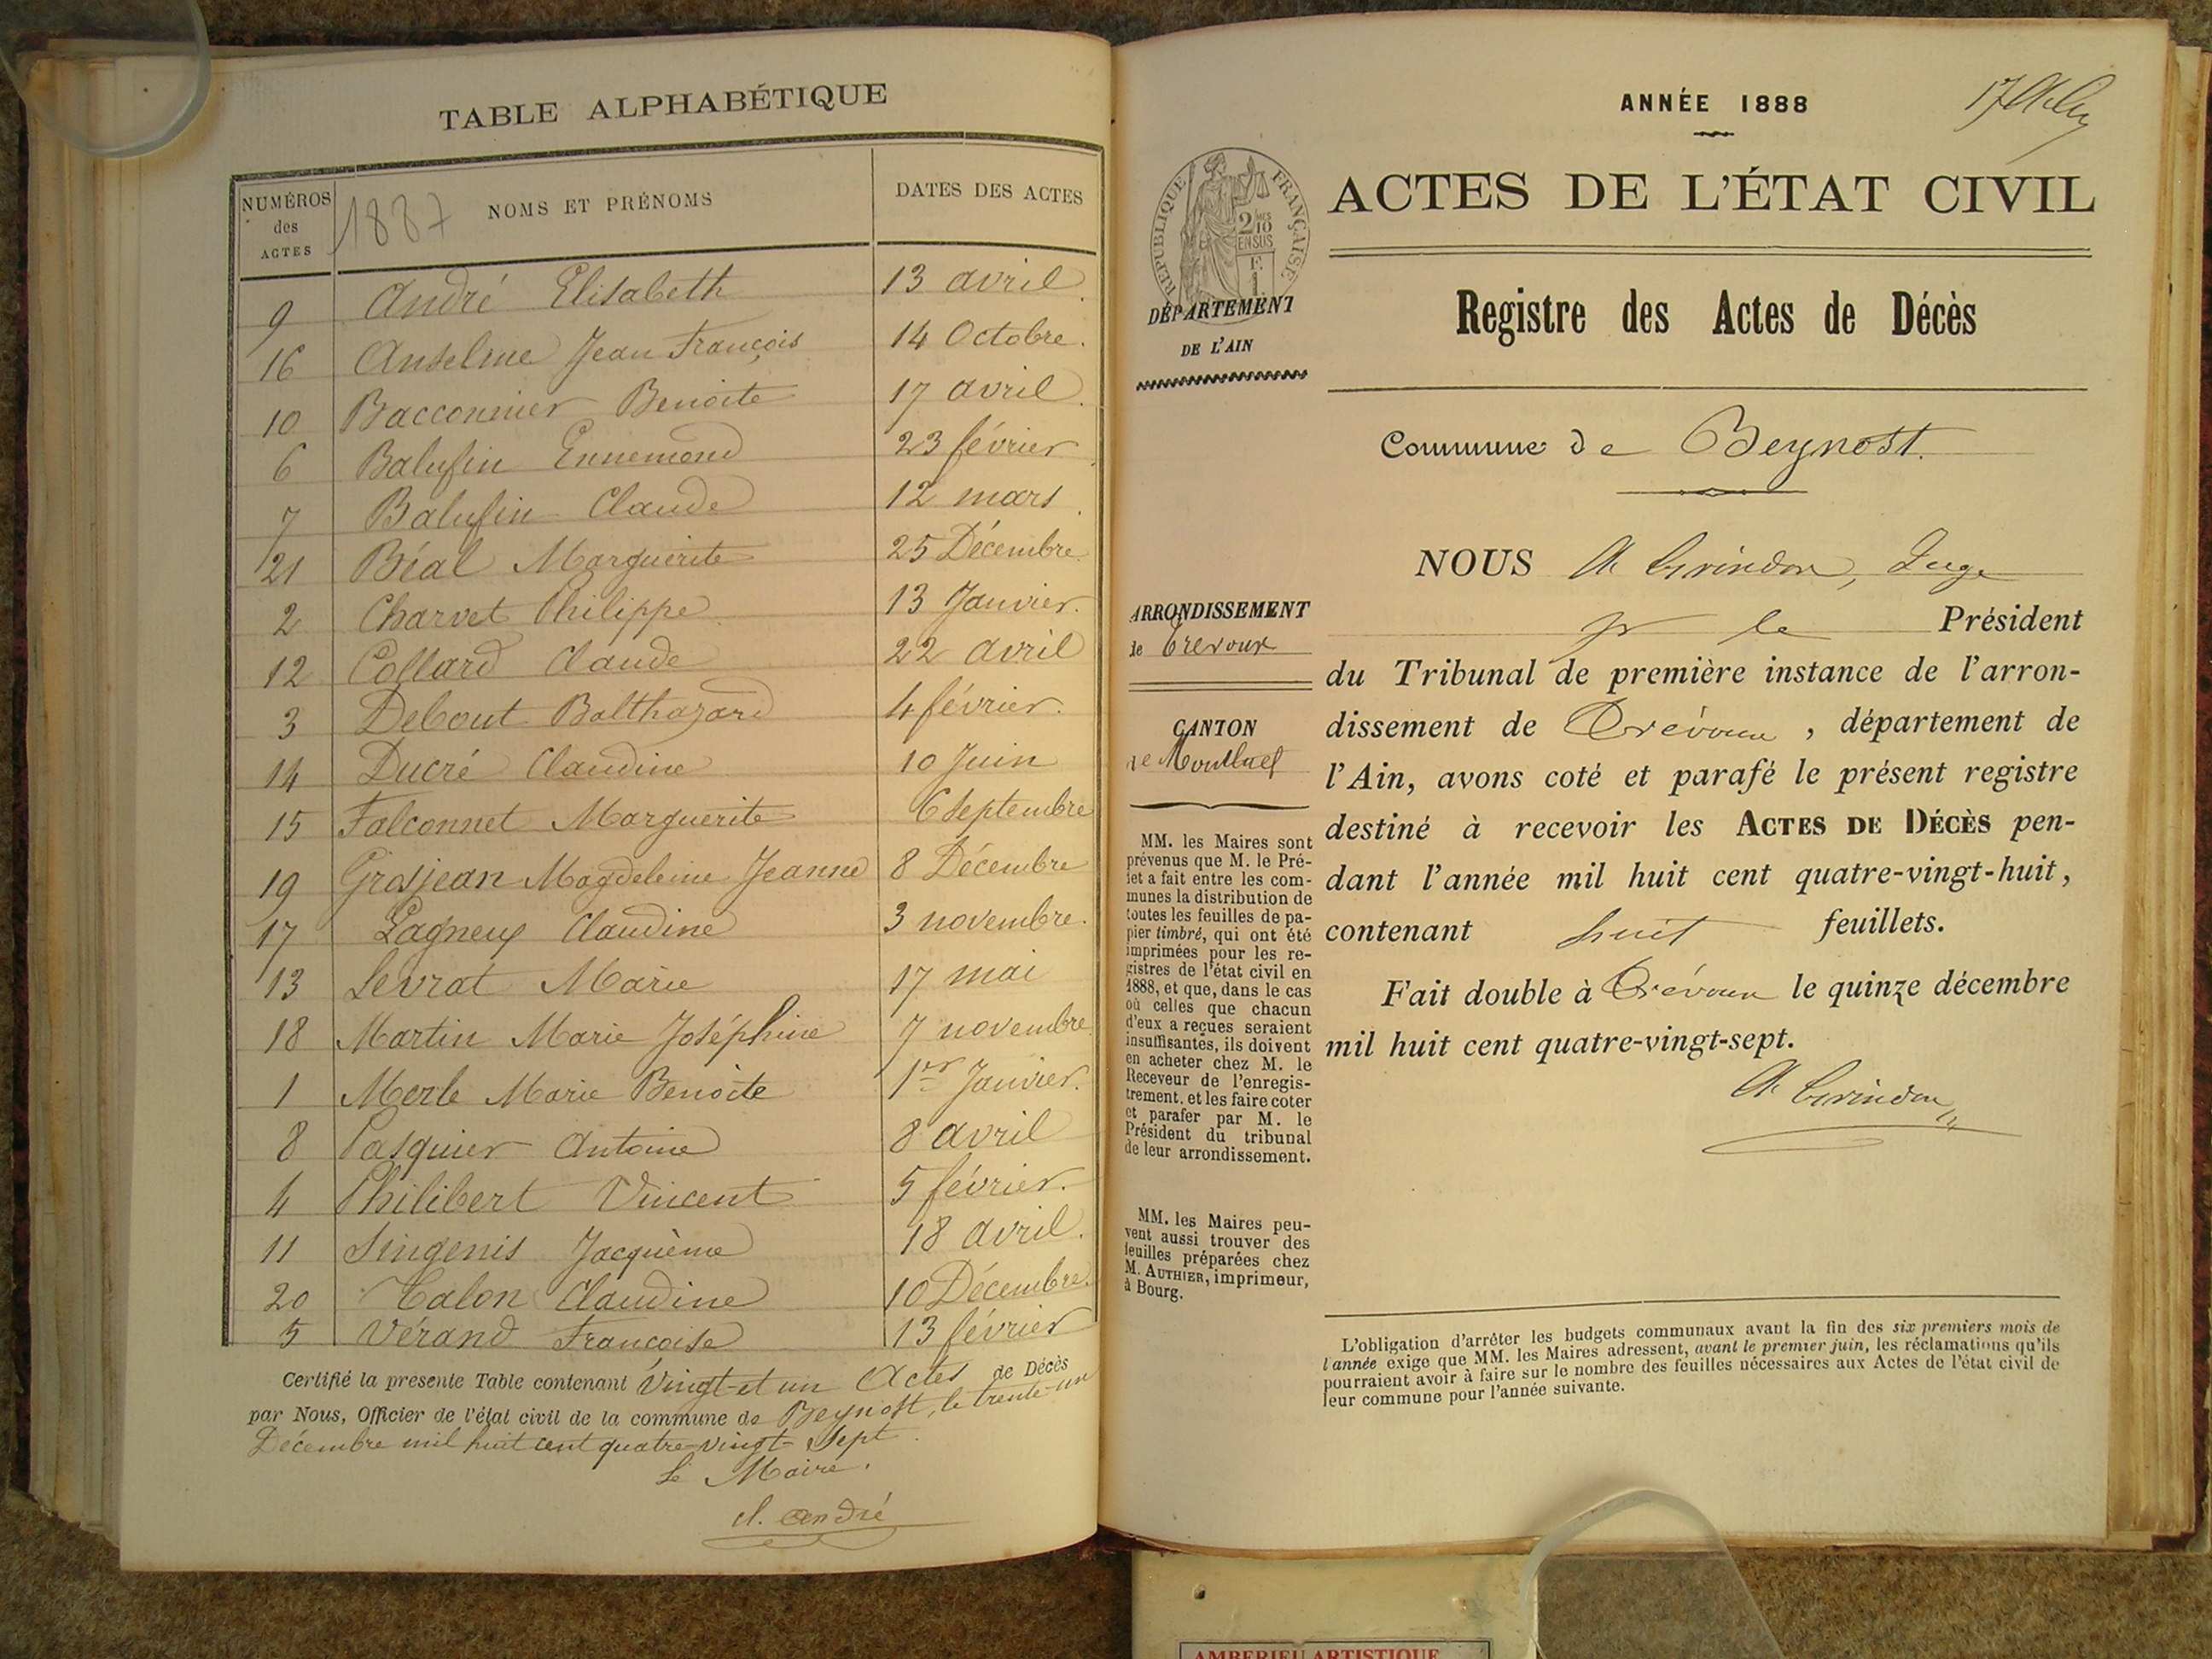 TABLE ALPHABÉTIQUE
NUMÉROS des ACTES 1887 NOMS ET PRÉNOMS DATES DES ACTES
9 André Elisabeth 13 avril
16 Anselme Jean François 14 Octobre.
10 Bacconnier Benoite 17 avril.
6 Balufin Ennemond 23 février
7 Balufin Claude 12 mars.
21 Béal Marguerite 25 Décembre
2 Charvet Philippe 13 Janvier.
12 Collard Claude 22 avril
3 Debout Balthazard 4 février.
14 Ducré Claudine 10 Juin
15 Falconnet Marguerite 6 Septembre
19 Grosjean Magdeleine Jeanne 8 Décembre
17 Lagneux Claudine 3 novembre.
13 Levrat Marie 17 mai
18 Martin Marie Joséphine 7 novembre
1 Merle Marie Benoite 1er Janvier.
8 Pasquier Antoine 8 avril
4 Philibert Vincent 5 février.
11 Singenis Jacquème 18 avril.
20 Talon Claudine 10 Décembre.
5 Vérand Françoise 13 février
Certifié la présente Table contenant Vingt-et un Actes de Décès
par Nous, Officier de l'état civil de la commune de Beynost, le trente-un
Décembre mil huit cent quatre-vingt-Sept.
Le Maire.
cl. André
ANNÉE 1888
ACTES DE L'ÉTAT CIVIL
REPUBLIQUE FRANÇAISE
2/10 EN SUS
F. 1
DÉPARTEMENT
DE L'AIN
Registre des Actes de Décès
Commune de Beynost.
NOUS Juge
ARRONDISSEMENT
de Trévoux
CANTON
de Montluel
MM. les Maires sont
prévenus que M. le Pré-
fet a fait entre les com-
munes la distribution de
toutes les feuilles de pa-
pier timbré, qui ont été
imprimées pour les re-
gistres de l'état civil en
1888, et que, dans le cas
où celles que chacun
d'eux a reçues seraient
insuffisantes, ils doivent
en acheter chez M. le
Receveur de l'enregis-
trement, et les faire coter
et parafer par M. le
Président du tribunal
de leur arrondissement.
MM. les Maires peu-
vent aussi trouver des
feuilles préparées chez
M. AUTHIER, imprimeur,
à Bourg.
pr le Président
du Tribunal de première instance de l'arron-
dissement de Trévoux, département de
l'Ain, avons coté et parafé le présent registre
destiné à recevoir les ACTES DE DÉCÈS pen-
dant l'année mil huit cent quatre-vingt-huit,
contenant huit feuillets.
Fait double à Trévoux le quinze décembre
mil huit cent quatre-vingt-sept.
L'obligation d'arrêter les budgets communaux avant la fin des six premiers mois de
l'année exige que MM. les Maires adressent, avant le premier juin, les réclamations qu'ils
pourraient avoir à faire sur le nombre des feuilles nécessaires aux Actes de l'état civil de
leur commune pour l'année suivante.
AMBERIEU ARTISTIQUE